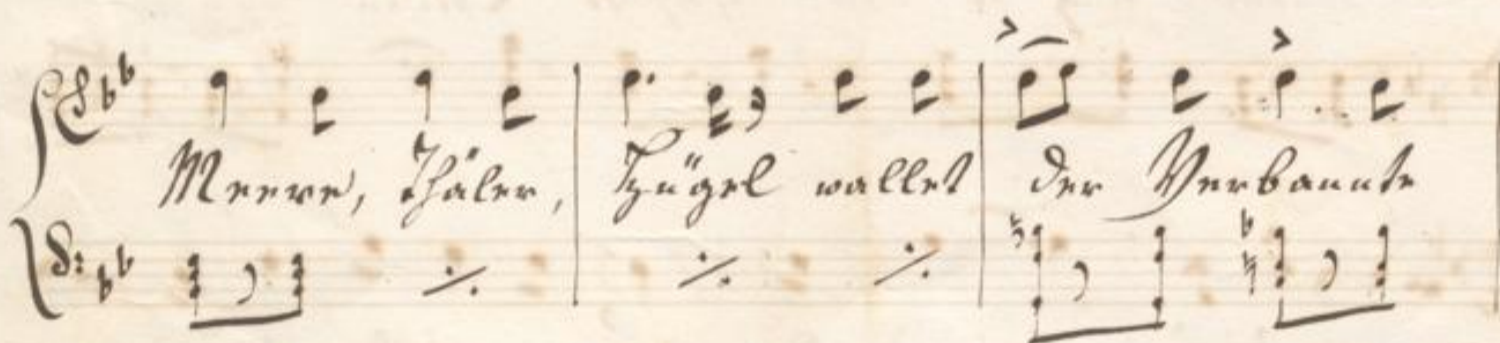 Meere, Thäler, Hügel wallet der Verbannte